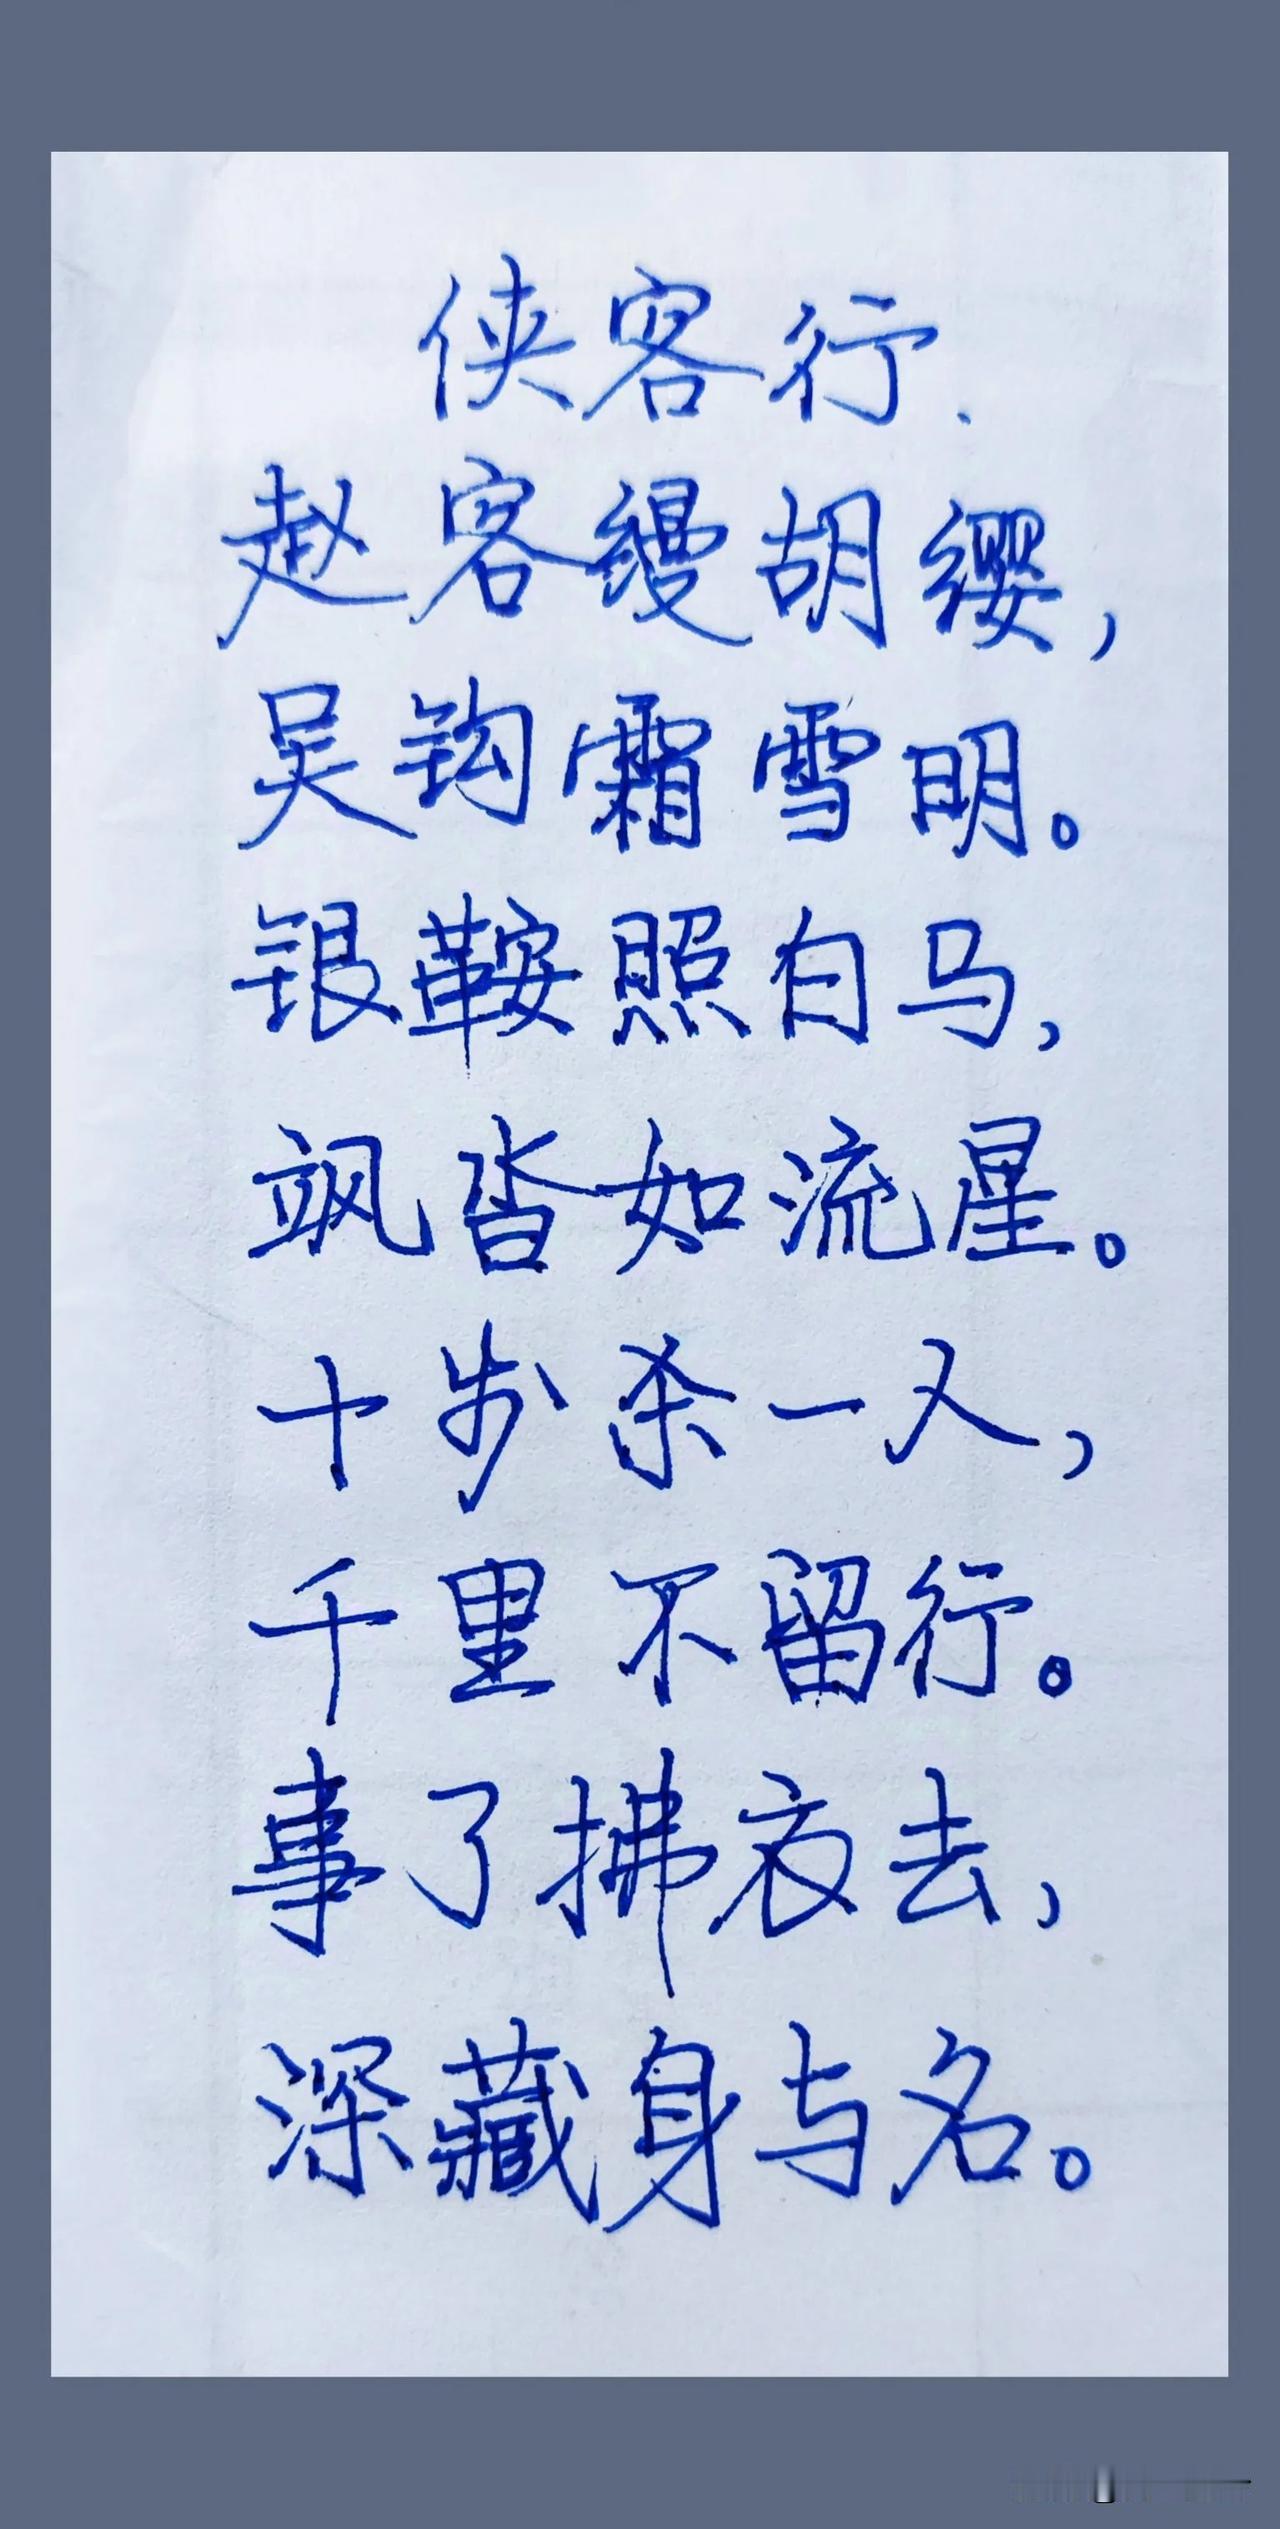 侠客行.
赵客缦胡缨,
吴钩霜雪明。
银鞍照白马,
飒沓如流星。
十步杀一人,
千里不留行。
事了拂衣去,
深藏身与名。